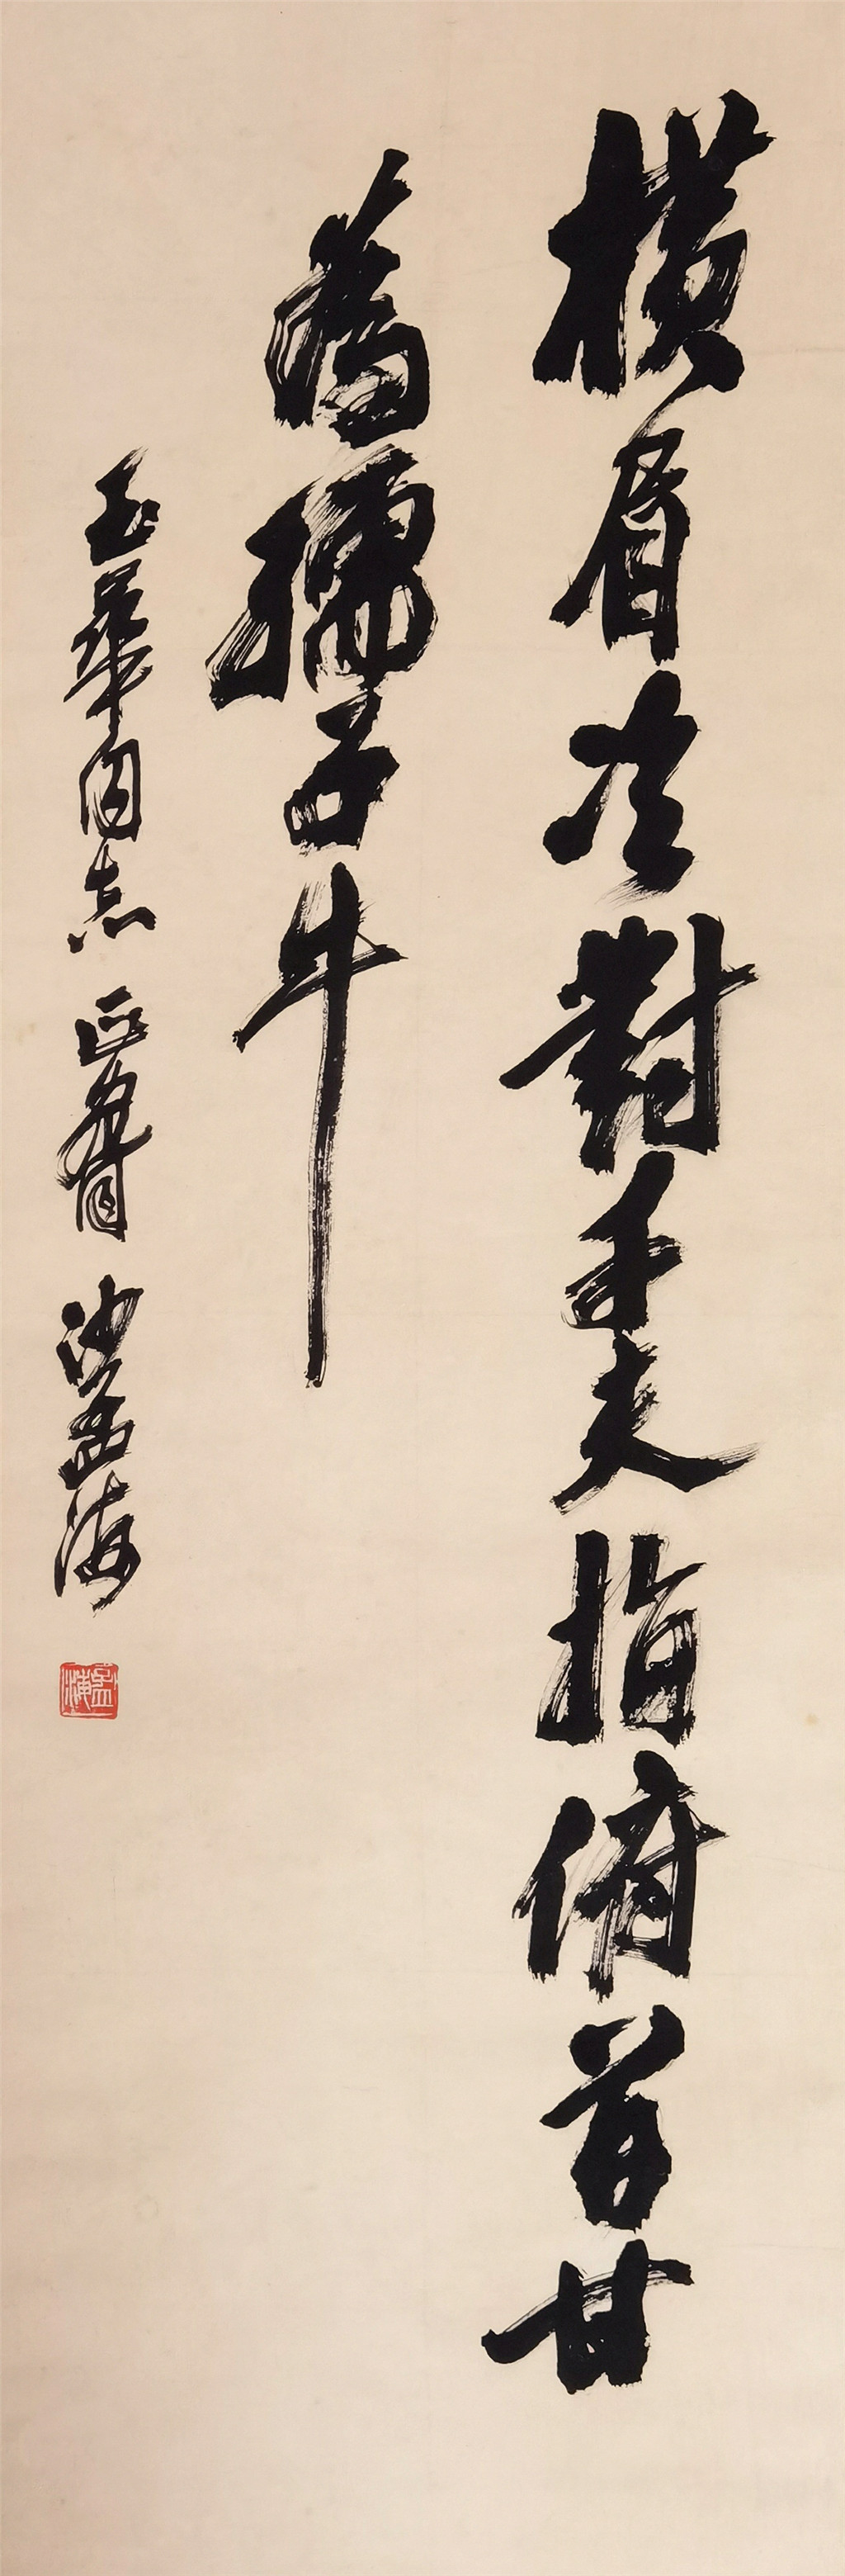 橫眉冷對千夫指俯首甘
爲孺子牛
玉華同志 正腕 沙孟海
孟海